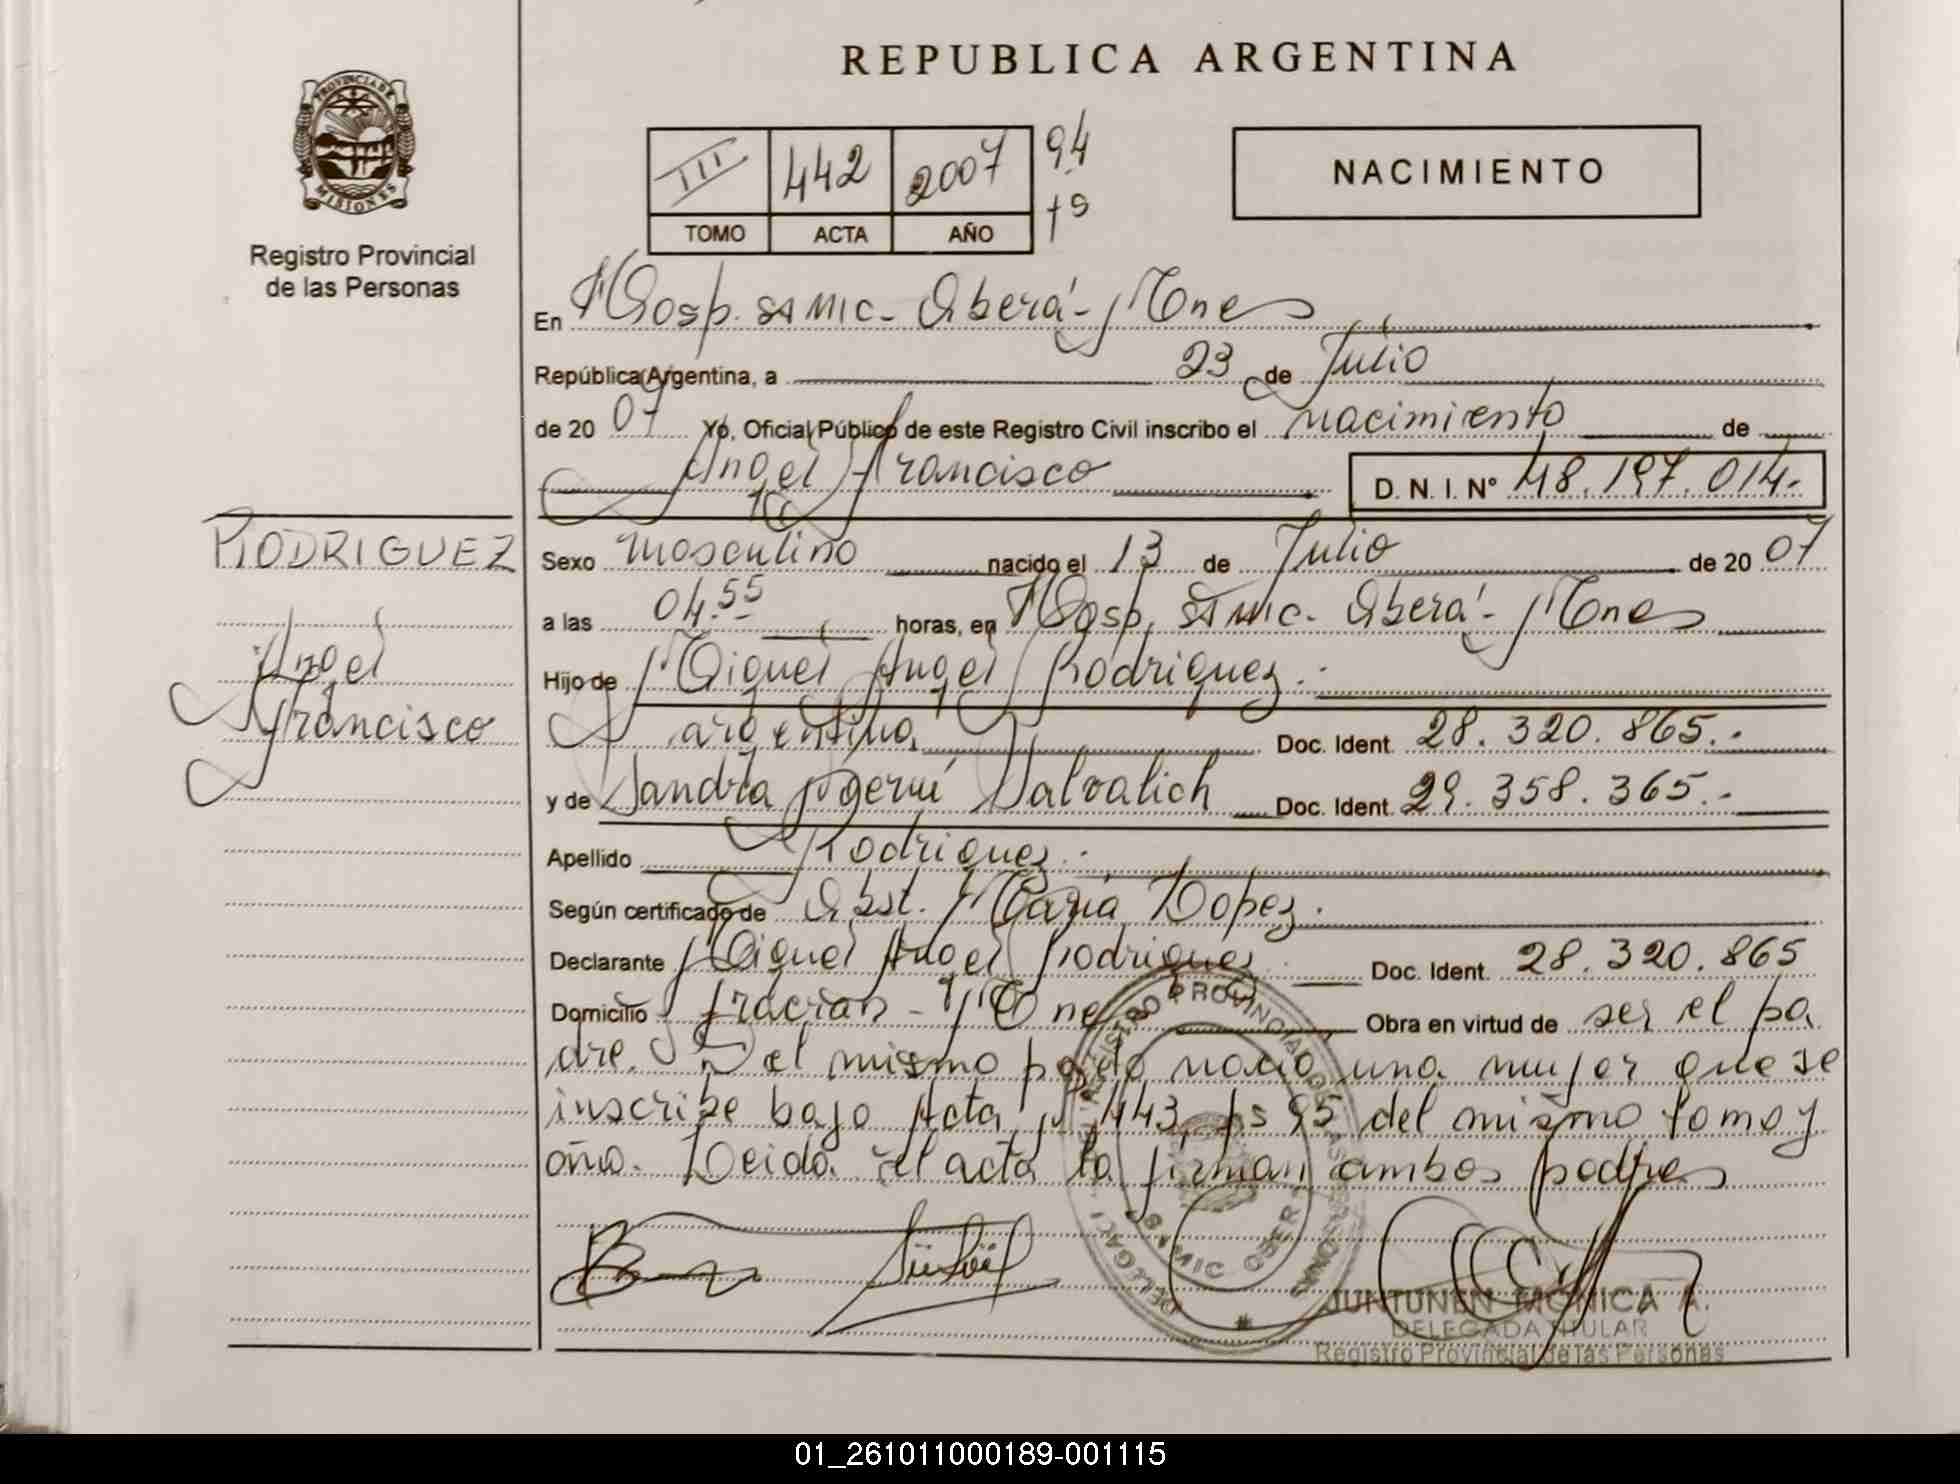 REPUBLICA ARGENTINA
PROVINCIA DE
MISIONES
Registro Provincial
de las Personas
III 442 2007 94
TOMO ACTA AÑO
NACIMIENTO
En Hosp. SAMIC - Oberá - Mnes
República Argentina, a 23 de Julio
de 20 07 Yo, Oficial Público de este Registro Civil inscribo el nacimiento de
Angel Francisco D. N. I. N° 48.197.014.-
RODRIGUEZ
Angel
Francisco
Sexo masculino nacido el 13 de Julio de 20 07
a las 04.55 horas, en Hosp. SAMIC - Oberá - Mnes
Hijo de Miguel Angel Rodriguez.-
argentina Doc. Ident. 28.320.865.-
y de Sandra Doc. Ident. 29.358.365.-
Apellido Rodriguez.-
Según certificado de Obst. Maria Lopez.
Declarante Miguel Angel Rodriguez Doc. Ident. 28.320.865
Domicilio - Mnes Obra en virtud de ser el pa
dre. Del mismo parto nació una mujer que se
inscribe bajo Acta n° 443, fs 95 del mismo tomo y
año. Leida el acta la firman ambos padres
REGISTRO PROVINCIAL DE LAS PERSONAS
SAMIC OBERA
JUNTUNEN MONICA A.
DELEGADA TITULAR
Registro Provincial de las Personas
01_261011000189-001115